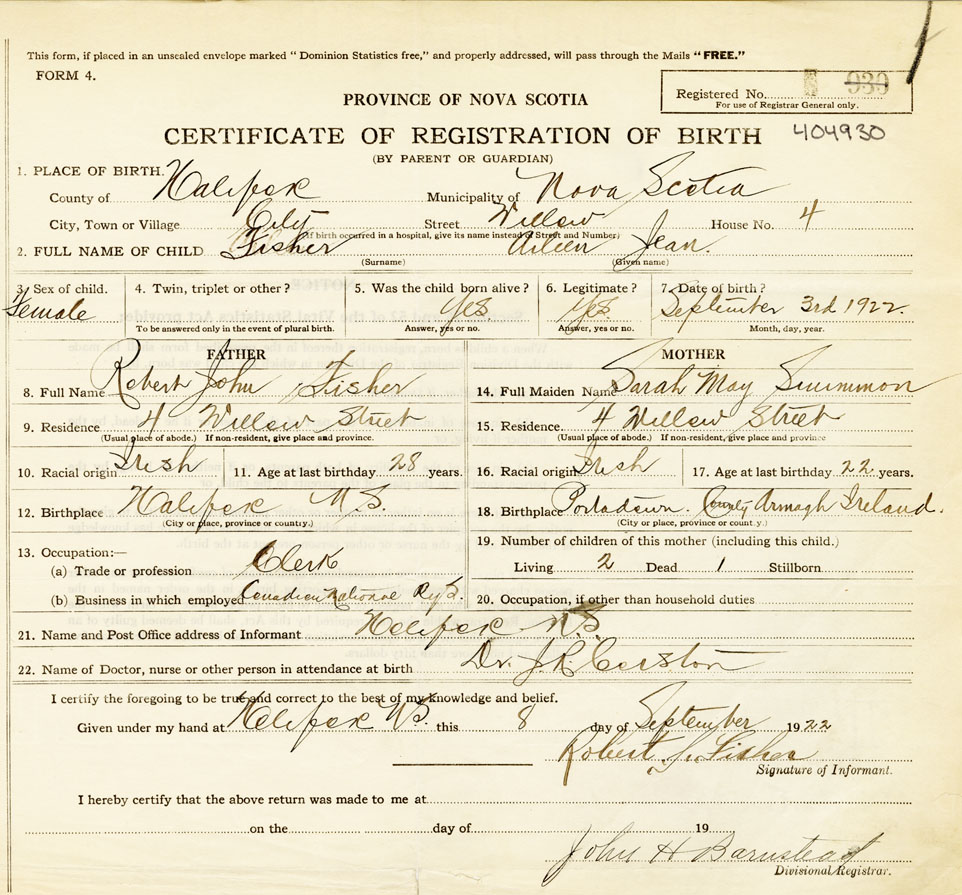 This form, if placed in an unsealed envelope marked "Dominion Statistics free," and properly addressed, will pass through the Mails "FREE."
FORM 4.
Registered No. 930
For use of Registrar General only.
PROVINCE OF NOVA SCOTIA
CERTIFICATE OF REGISTRATION OF BIRTH 404930
(BY PARENT OR GUARDIAN)
1. PLACE OF BIRTH.
County of Halifax Municipality of Nova Scotia
City, Town or Village City Street Willow House No. 4
(If birth occurred in a hospital, give its name instead of Street and Number)
2. FULL NAME OF CHILD Fisher Aileen Jean.
(Surname) (Given name)
3. Sex of child. 4. Twin, triplet or other? 5. Was the child born alive? 6. Legitimate? 7. Date of birth?
Female Yes Yes September 3rd 1922
To be answered only in the event of plural birth. Answer, yes or no. Answer, yes or no. Month, day, year.
FATHER MOTHER
8. Full Name Robert John Fisher 14. Full Maiden Name Sarah May
9. Residence 4 Willow Street 15. Residence. 4 Willow Street
(Usual place of abode.) If non-resident, give place and province. (Usual place of abode.) If non-resident, give place and province
10. Racial origin Irish 11. Age at last birthday 28 years. 16. Racial origin Irish 17. Age at last birthday 22 years.
12. Birthplace Halifax N.S. 18. Birthplace Portadown. County Armagh Ireland.
(City or place, province or country.) (City or place, province or country.)
13. Occupation:— 19. Number of children of this mother (including this child.)
(a) Trade or profession Clerk Living 2 Dead 1 Stillborn
(b) Business in which employed Canadian National Ry's. 20. Occupation, if other than household duties
21. Name and Post Office address of Informant Halifax N.S.
22. Name of Doctor, nurse or other person in attendance at birth Dr. J. R. Corston
I certify the foregoing to be true and correct to the best of my knowledge and belief.
Given under my hand at Halifax N.S. this 8 day of September 1922
Robert J. Fisher
Signature of Informant.
I hereby certify that the above return was made to me at
on the day of 19
John H Barnstead
Divisional Registrar.